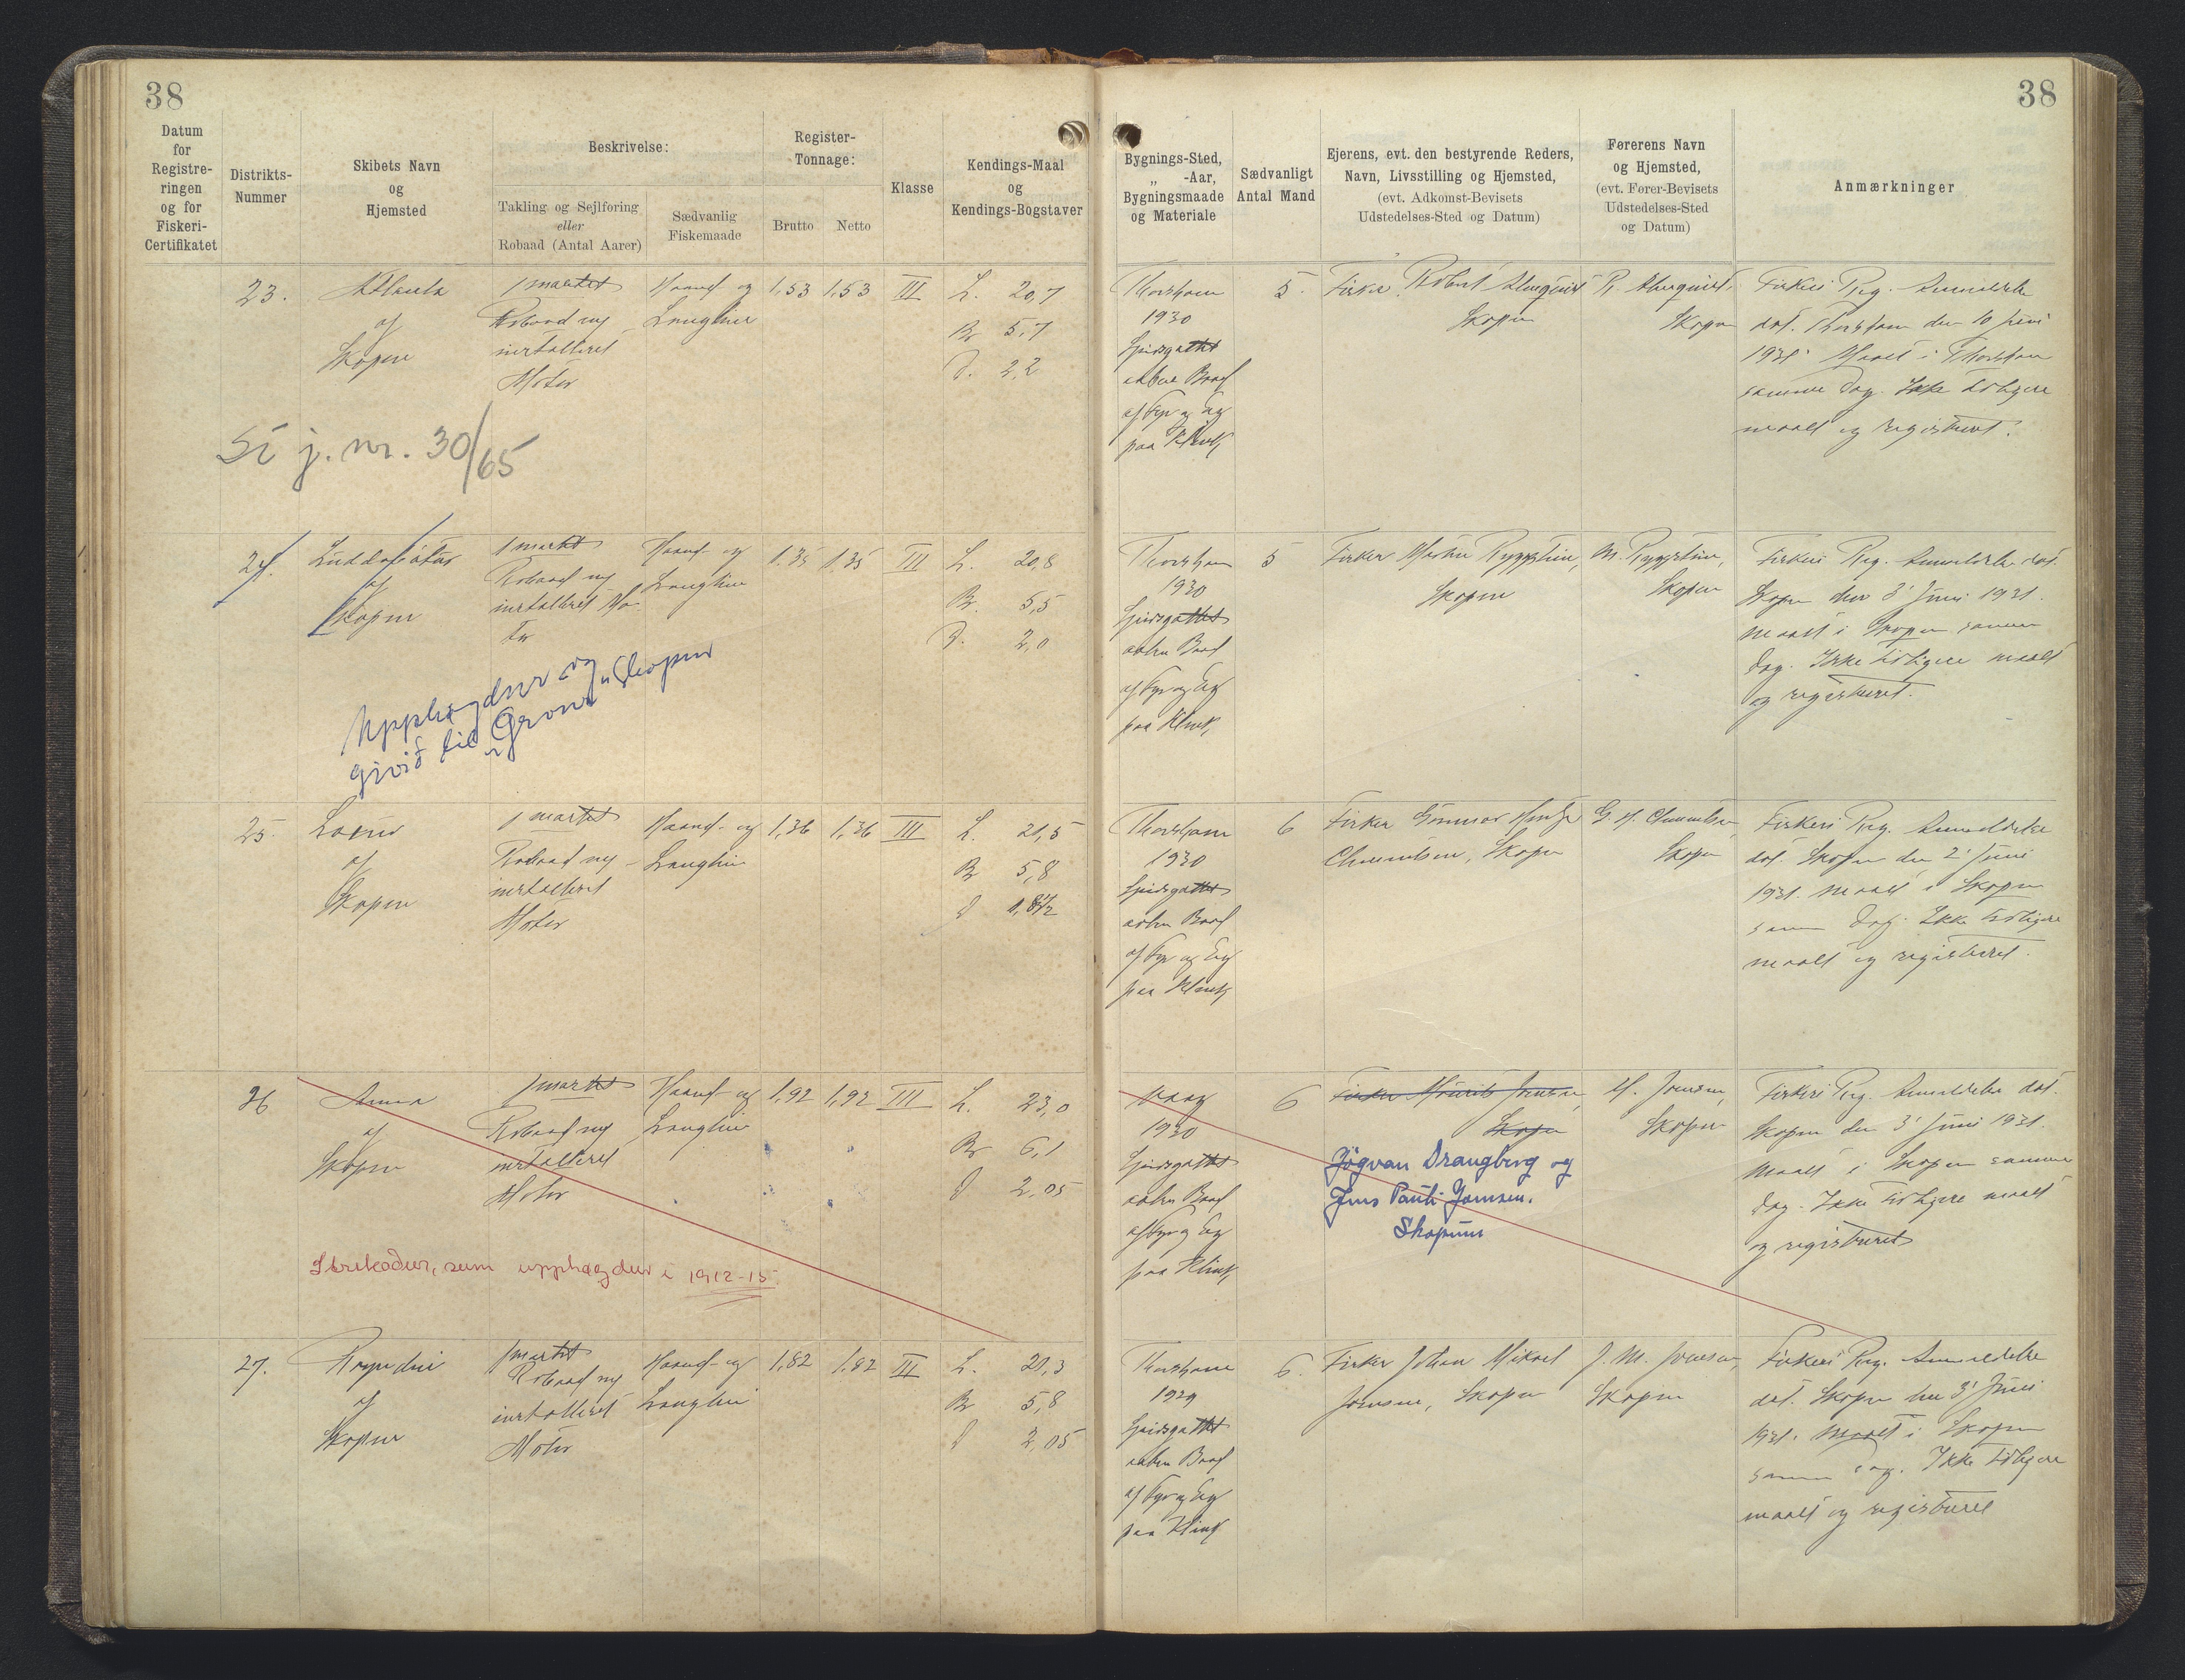 38
38
Datum
for
Registre-
ringen
og for
Fiskeri-
Certifikatet
Distrikts-
Nummer
Skibets Navn
og
Hjemsted
Beskrivelse:
Takling og Sejlføring
eller
Robaad (Antal Aarer)
Sædvanlig
Fiskemaade
Register-
Tonnage:
Brutto
Netto
Klasse
Kendings-Maal
og
Kendings-Bogstaver
Bygnings-Sted,
„ -Aar,
Bygningsmaade
og Materiale
Sædvanligt
Antal Mand
Ejerens, evt. den bestyrende Reders,
Navn, Livsstilling og Hjemsted,
(evt. Adkomst-Bevisets
Udstedelses-Sted og Datum)
Førerens Navn
og Hjemsted,
(evt. Fører-Bevisets
Udstedelses-Sted
og Datum)
Anmærkninger
23.
af
Skopun
1 mastet
Robaad ny
installeret
Motor
Haand og
Langline
1,53
1,53
III
L. 20,7
B 5,7
D. 2,2
Thorshavn
1930
Spidsgattet
aaben Baad
af Fyr og Eg
paa Klink
5.
Fisker Robert
Skopun
R.
Skopun
Fiskeri Reg. Anmeldelse
dat. Thorshavn den 10 Juni
1931. Maalt i Thorshavn
samme Dag. Ikke tidligere
maalt og registreret.
Sí j. nr. 30/65
24.
af
Skopun
1 mastet
Robaad ny
installeret Mo-
tor
Haand- og
Langline
1,35
1,35
III
L. 20,8
B. 5,5
D. 2,0
Thorshavn
1930
Spidsgattet
aaben Baad
af Fyr og Eg
paa Klink
5
Fisker Martin
Skopun
M.
Skopun
Fiskeri Reg. Anmeldelse dat.
Skopun den 3' Juni 1931.
Maalt i Skopun samme
Dag. Ikke tidligere maalt
og registreret.
Upphøgdur og
givið til „Skopun
25.
af
Skopun
1 mastet
Robaad ny
installeret
Motor
Haand- og
Langline
1,36
1,36
III
L. 21,5
B 5,8
D
Thorshavn
1930
Spidsgattet
aaben Baad
af Fyr og Eg
paa Klink
6
Fisker
Clementsen, Skopun
Skopun
Fiskeri Reg. Anmeldelse
dat. Skopun den 2' Juni
1931. Maalt i Skopun
samme Dag. Ikke tidligere
maalt og registreret.
26
Anna
af
Skopun
1 mastet
Robaad ny
installeret
Motor
Haand- og
Langline
1,92
1,92
III
L. 23,0
B 6,1
D 2,05
Vaag
1930
Spidsgattet
aaben Baad
af Fyr og Eg
paa Klink
6
Fisker Mourits Joensen,
Skopun
Jógvan Drangberg og
Jens Pauli Joensen.
Skopun
M. Joensen,
Skopun
Fiskeri Reg. Anmeldelse dat.
Skopun den 3' Juni 1931.
Maalt i Skopun samme
Dag. Ikke tidligere maalt
og registreret
Strikaður, sum upphøgdur í 1912-15.
27.
af
Skopun
1 mastet
Robaad ny
installeret
Motor
Haand- og
Langline
1,82
1,82
III
L. 21,3
B 5,8
D 2,05
Thorshavn
1929
Spidsgattet
aaben Baad
af Fyr og Eg
paa Klink
6.
Fisker Johan Mikael
Joensen, Skopun
J. M. Joensen,
Skopun
Fiskeri Reg. Anmeldelse
dat. Skopun den 3' Juni
1931. Maalt i Skopun
samme Dag. Ikke tidligere
maalt og registreret